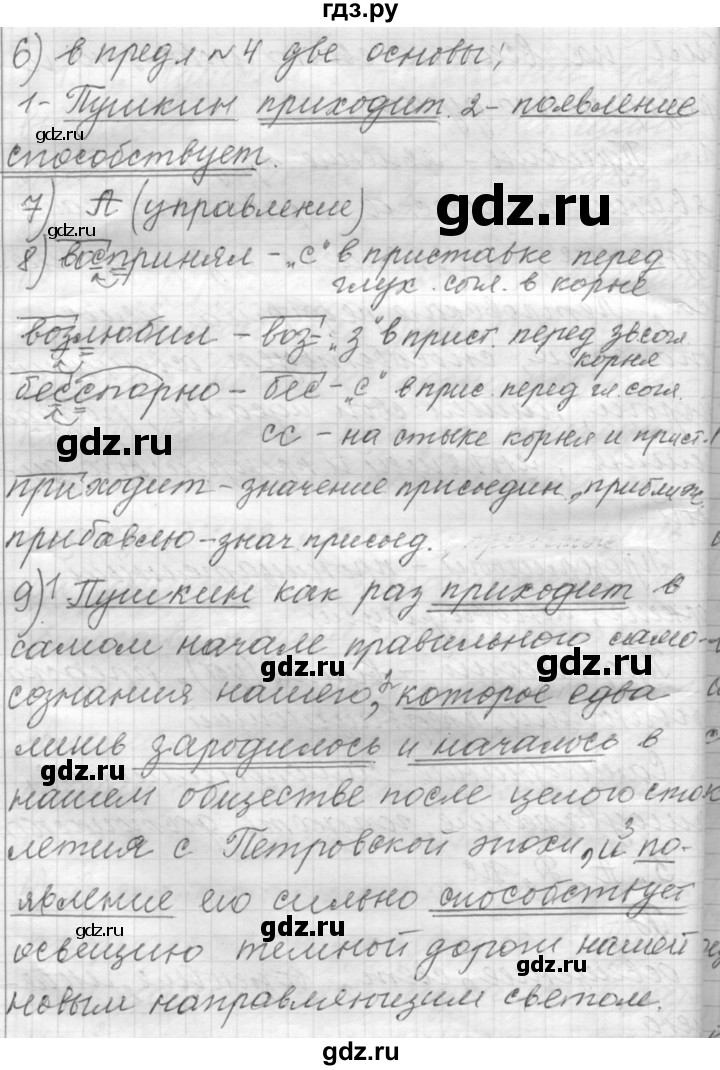 гдз.ру
6) в предл №4 две основы;
1- Пушкин приходит. 2- появление
gdz.ru
способствует.
7) А (управление)
gdz.ru
gdz.ru
8) воспринял - „с" в приставке перед
глух. согл. в корне
возлюбил - воз- „з" в прист. перед зв согл
корня
бесспорно - бес - „с" в прис. перед гл. согл.
gdz.ru
gdz.ru
сс - на стыке корня и прист.
приходит - значение присоедин, приближ.
прибавлю - знач присоед.
gdz.ru
9) 1 Пушкин как раз приходит в
самом начале правильного само-
gdz.ru
gdz.ru
сознания нашего, 2 которое едва
лишь зародилось и началось в
gdz.ru
нашем обществе после целого стол
летия с Петровской эпохи, и 3 по-
gdz.ru
явление его сильно способствует
gdz.ru
освещению темной дороги нашей
gdz.ru
новым направляющим светом.
gdz.ru